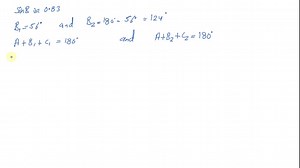 SinB ≈ 0.83
B₁ = 56° and B₂ = 180° - 56° = 124°
A + B₁ + C₁ = 180° and A + B₂ + C₂ = 180°